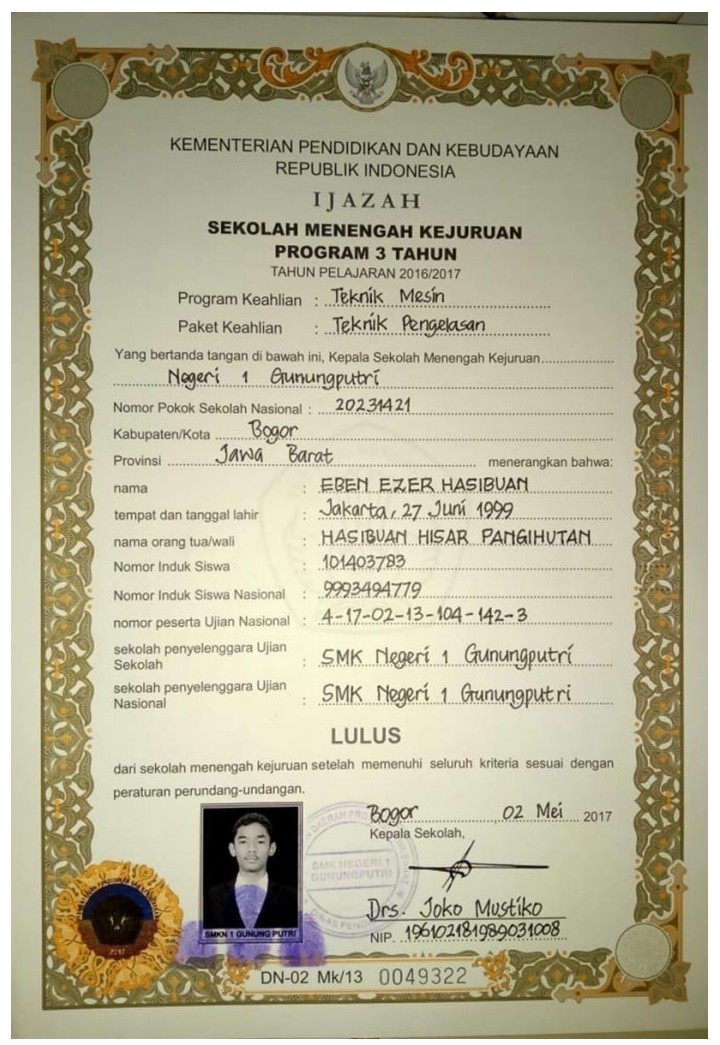 KEMENTERIAN PENDIDIKAN DAN KEBUDAYAAN
REPUBLIK INDONESIA
IJAZAH
SEKOLAH MENENGAH KEJURUAN
PROGRAM 3 TAHUN
TAHUN PELAJARAN 2016/2017
Program Keahlian : Teknik Mesin
Paket Keahlian : Teknik Pengelasan
Yang bertanda tangan di bawah ini, Kepala Sekolah Menengah Kejuruan
Negeri 1 Gunungputri
Nomor Pokok Sekolah Nasional : 20231421
Kabupaten/Kota Bogor
Provinsi Jawa Barat menerangkan bahwa:
nama : EBEN EZER HASIBUAN
tempat dan tanggal lahir : Jakarta, 27 Juni 1999
nama orang tua/wali : HASIBUAN HISAR PANGIHUTAN
Nomor Induk Siswa : 101403783
Nomor Induk Siswa Nasional : 9993494779
nomor peserta Ujian Nasional : 4-17-02-13-104-142-3
sekolah penyelenggara Ujian
Sekolah : SMK Negeri 1 Gunungputri
sekolah penyelenggara Ujian
Nasional : SMK Negeri 1 Gunungputri
LULUS
dari sekolah menengah kejuruan setelah memenuhi seluruh kriteria sesuai dengan
peraturan perundang-undangan.
Bogor, 02 Mei 2017
Kepala Sekolah,
SMK NEGERI 1
GUNUNGPUTRI
Drs. Joko Mustiko
NIP. 196102181989031008
SMKN 1 GUNUNG PUTRI
2017
DN-02 Mk/13 0049322